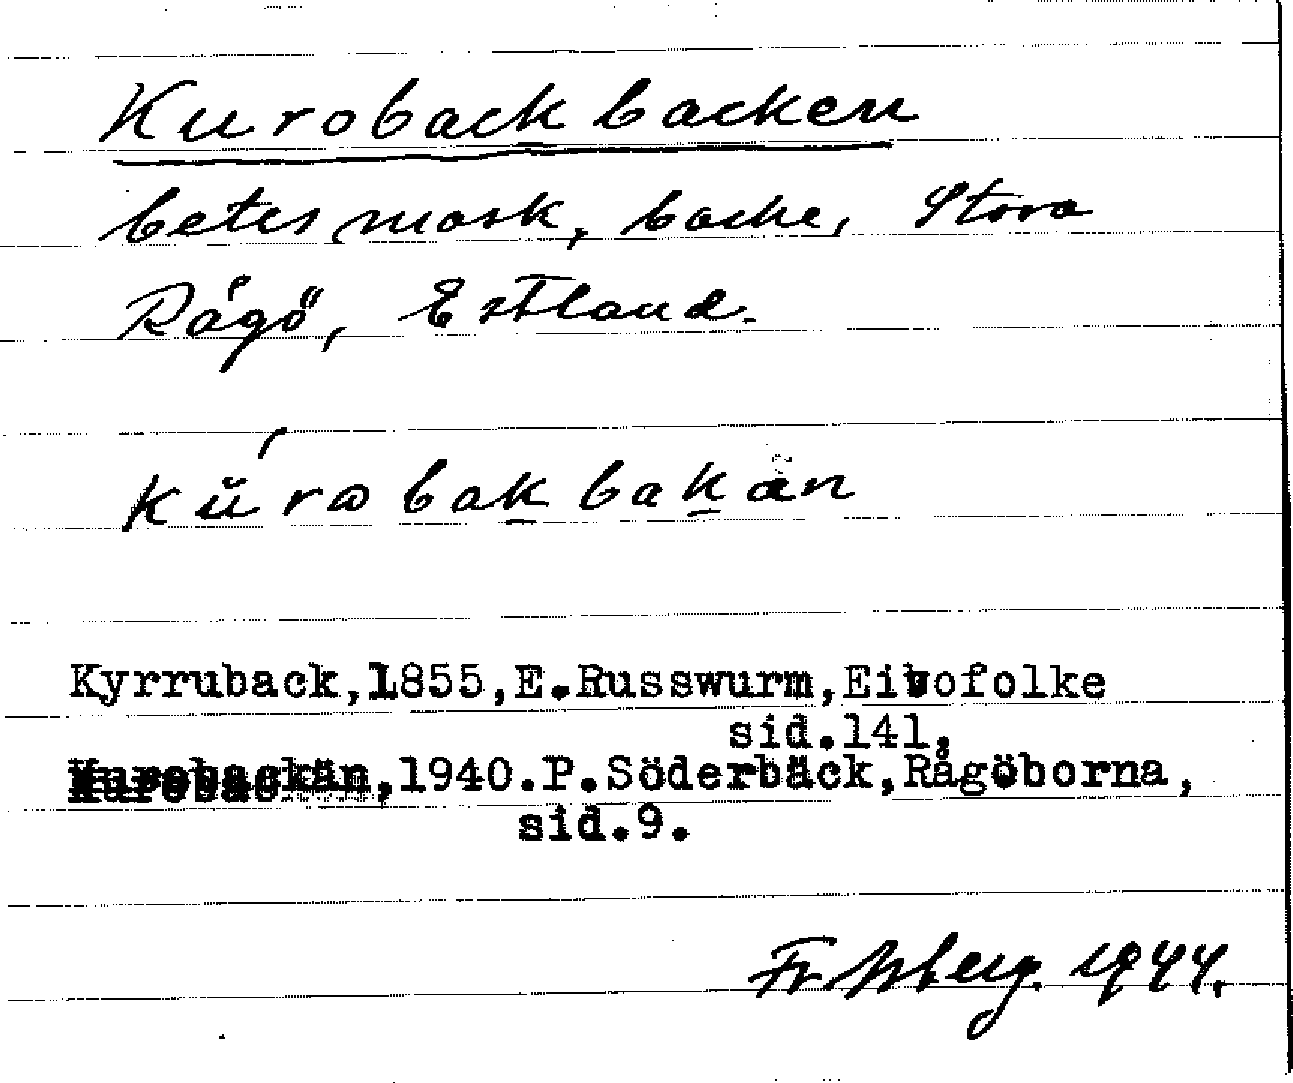 Kurobackbacken
betesmark, backe, Stora
Rågö, Estland.
kŭ́rabakbakän
Kyrruback,1855,E.Russwurm,Eibofolke
sid.141.
Kurobackän,1940.P.Söderbäck,Rågöborna,
sid.9.
1944.